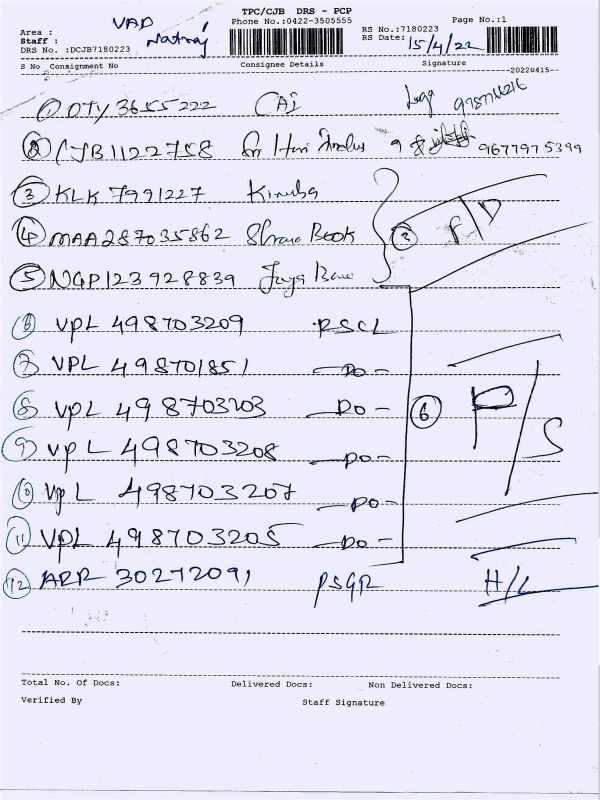 TPC/CJB DRS - PCP
Phone No.:0422-3505555
Page No.:1
Area : VAD
Staff : Natraj
RS No.:7180223
RS Date: 15/4/22
DRS No. :DCJB7180223
S No Consignment No Consignee Details Signature
20220415
1 OTY 3655222 CAI
2 CJB1122758 Sri Hari 9677975399
3 KLK 7991227
4 MAA287035862 Book
5 NGP123928839 Jaya
3 F/D
6 VPL 498703209 RSCL
7 VPL 498701851 -DO-
8 VPL 498703203 -DO-
6 P/S
9 VPL 498703208 -DO-
10 VPL 498703207 -DO-
11 VPL 498703205 -DO-
12 ARR 30272091 PSGR H/L
Total No. Of Docs: Delivered Docs: Non Delivered Docs:
Verified By Staff Signature